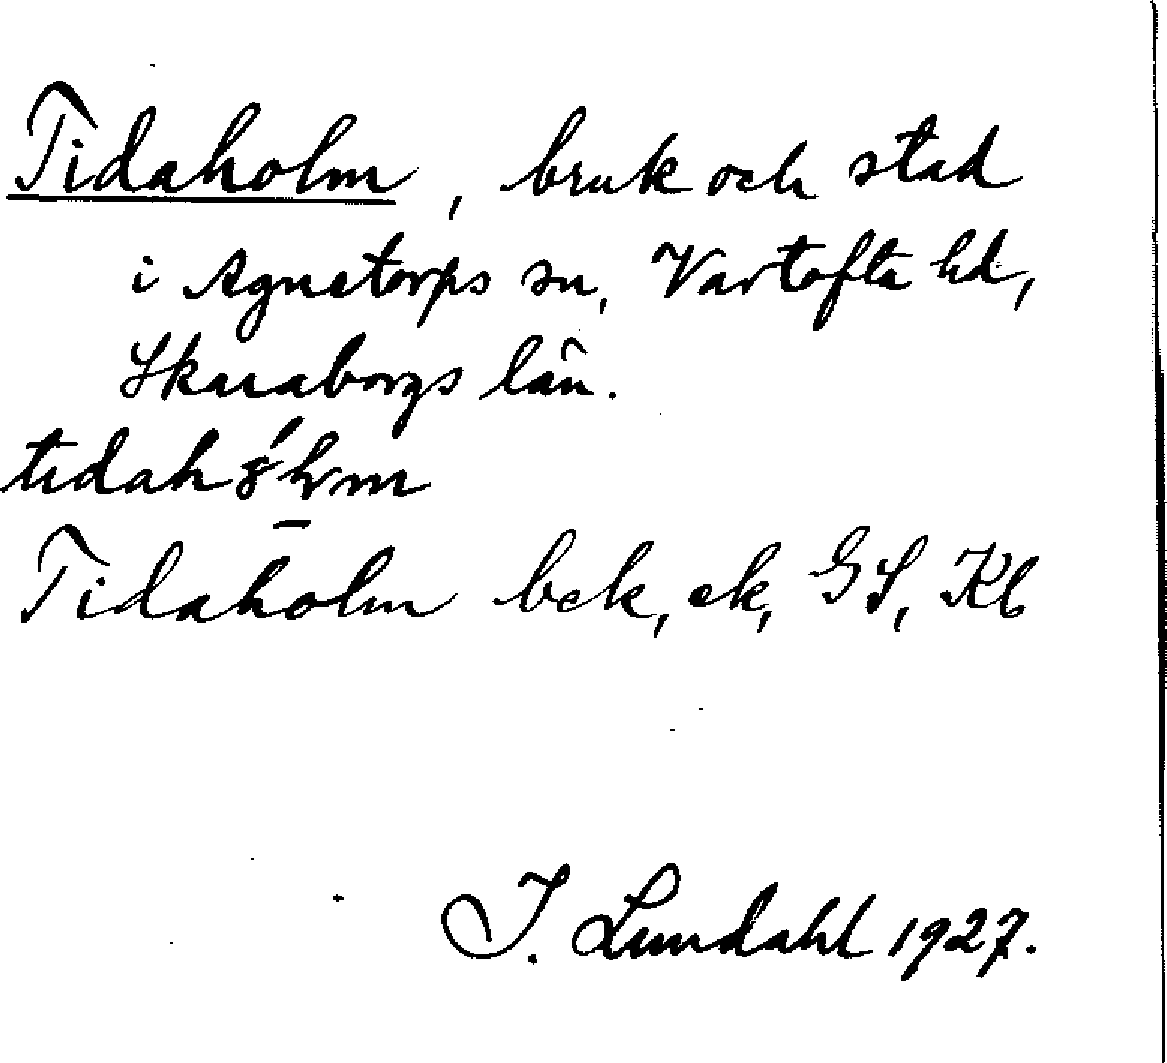 Tidaholm, bruk och stad
i Agnetorps sn, Vartofta hd,
Skaraborgs län.
Tidaholm bek, ek, GS, Kb
I. Lundahl 1927.